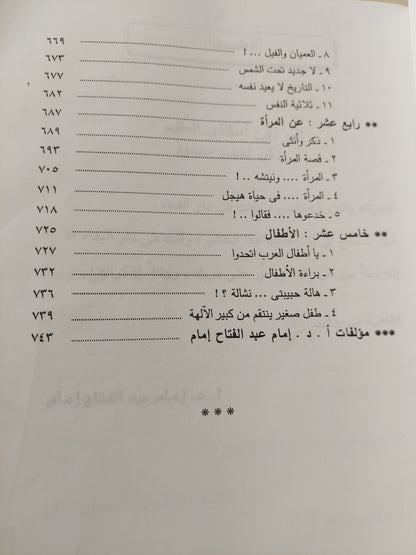 ٨ ـ العميان والفيل ... ! ٦٦٩
٩ ـ لا جديد تحت الشمس ٦٧٣
١٠ ـ التاريخ لا يعيد نفسه ٦٧٧
١١ ـ ثلاثية النفس ٦٨٢
** رابع عشر : عن المرأة ٦٨٧
١ ـ ذكر وأنثى ٦٨٩
٢ ـ قصة المرأة ٦٩٣
٣ ـ المرأة .... ونيتشه .. ! ٧٠٥
٤ ـ المرأة .... فى حياة هيجل ٧١١
٥ ـ خدعوها .... فقالوا .. ! ٧١٨
** خامس عشر : الأطفال ٧٢٥
١ ـ يا أطفال العرب اتحدوا ٧٢٧
٢ ـ براءة الأطفال ٧٣٢
٣ ـ هالة حبيبتى ... نشالة ؟ ! ٧٣٦
٤ ـ طفل صغير ينتقم من كبير الآلهة ٧٣٩
*** مؤلفات أ . د . إمام عبد الفتاح إمام ٧٤٣
***